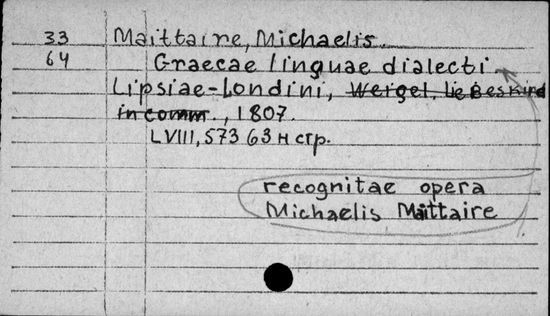 33 Maittaire, Michaelis.
64 Graecae linguae dialecti
Lipsiae-Londini, Weigel. Liebeskind
in comm. , 1807.
LVIII, 573 63 н стр.
recognitae opera
Michaelis Maittaire